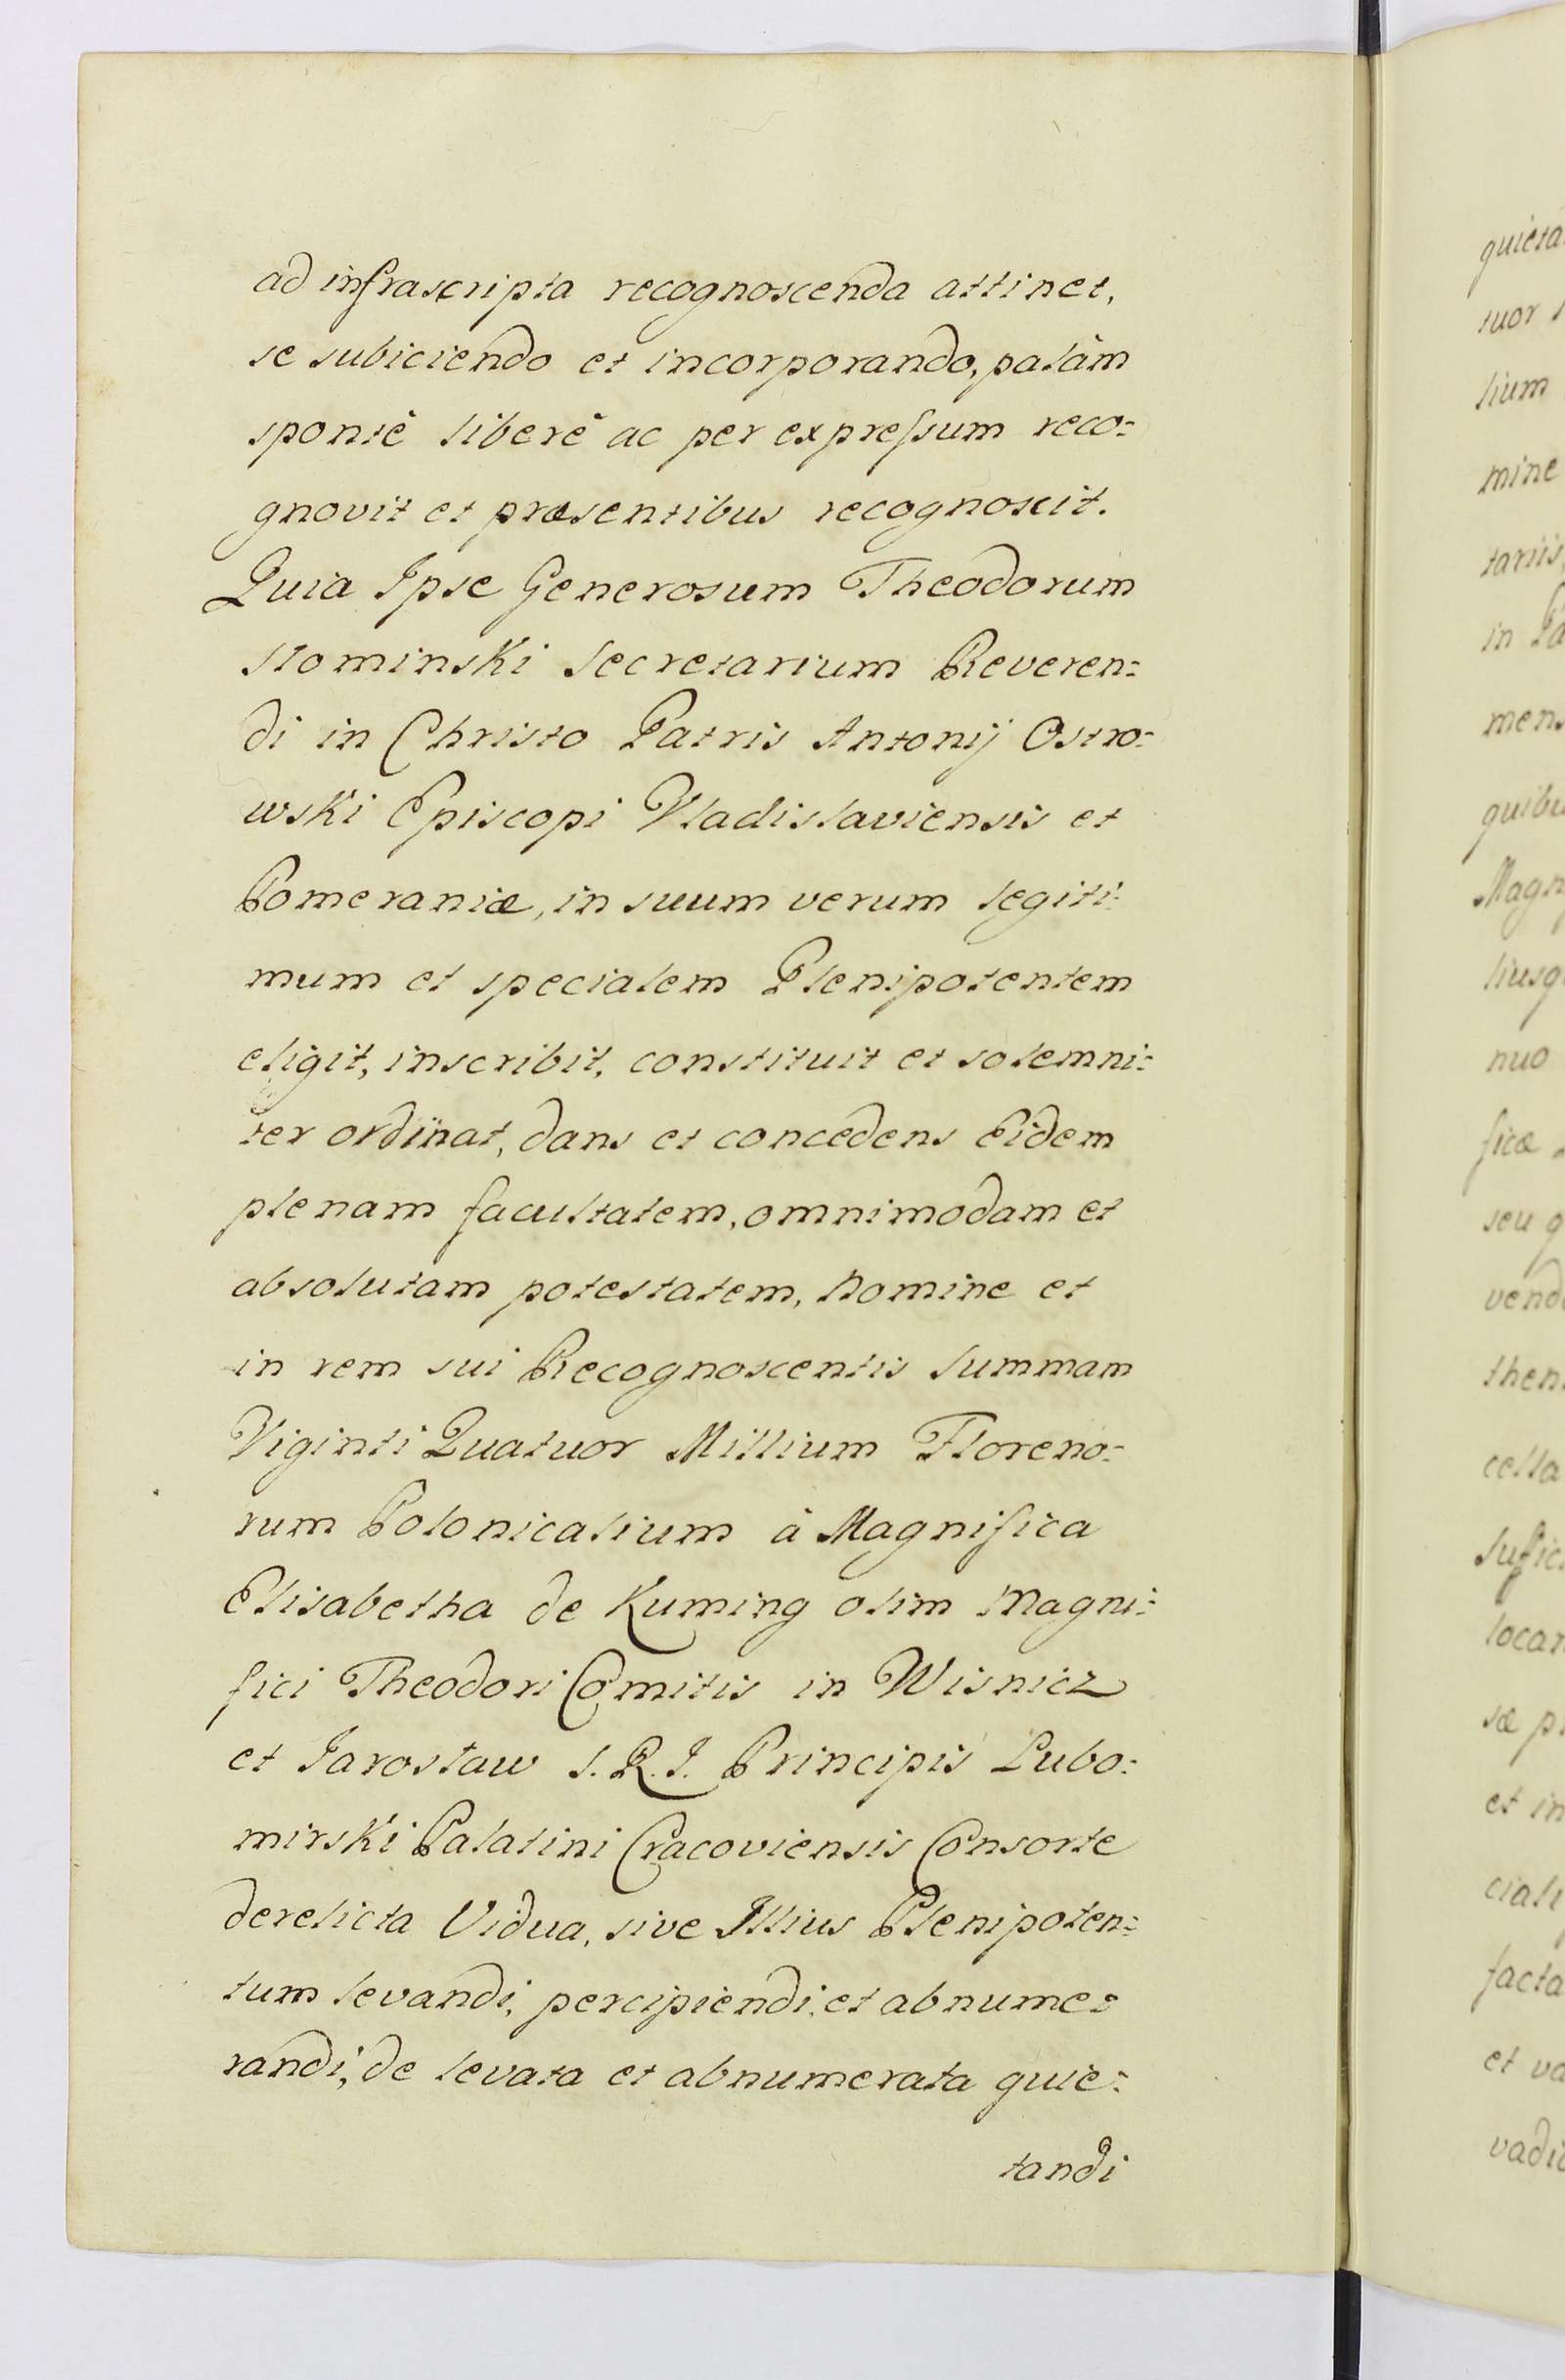 ad infrascripta recognoscenda attinet,
se subiciendo et incorporando, palàm
spontè liberè ac per expreſsum reco=
gnovit et præsentibus recognoscit.
Quia Ipse Generosum Theodorum
Słominski Secretarium Reveren=
di in Christo Patris Antonij Ostro=
wski Episcopi Vladislaviensis et
Pomeraniæ, in suum verum legiti=
mum et specialem Plenipotentem
eligit, inscribit, constituit et solemni=
ter ordinat, dans et concedens Eidem
plenam facultatem, omnimodam et
absolutam potestatem, Nomine et
in rem sui Recognoscentis Summam
Viginti Quatuor Millium Floreno=
rum Polonicalium à Magnifica
Elisabetha de Kuming olim Magni=
fici Theodori Comitis in Wisnicz
et Jarosław S. R. I. Principis Lubo=
mirski Palatini Cracoviensis Consorte
derelicta Vidua, sive Illius Plenipoten=
tum levandi, percipiendi, et abnume=
randi, de levata et abnumerata quie=
tandi
quieta
tuor
lium
mine
tariis
in
mens
quibu
Magn
liusq
nuo
ficæ
seu q
vend
then
cella
locar
sæ p
et in
ciali
facta
et va
vadi